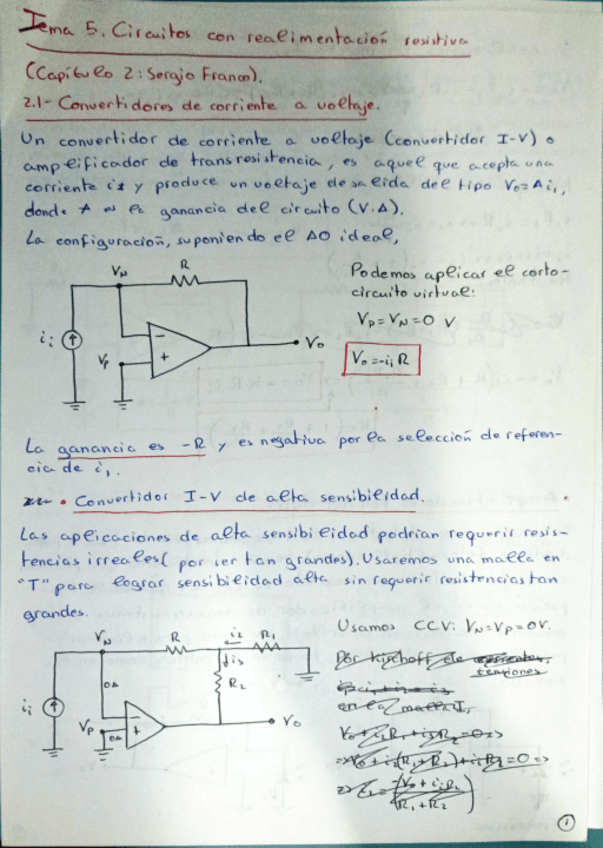 Tema 5. Circuitos con realimentación resistiva
(Capítulo 2: Sergio Franco).
2.1- Convertidores de corriente a voltaje.
Un convertidor de corriente a voltaje (convertidor I-V) o
amplificador de transresistencia, es aquel que acepta una
corriente i₁ y produce un voltaje de salida del tipo V₀=Ai₁,
donde A es la ganancia del circuito (V.A).
La configuración, suponiendo el AO ideal,
Podemos aplicar el corto-
circuito virtual:
Vp=VN=0 V
V₀=-i₁R
VN
R
ii
Vp
V₀
La ganancia es -R y es negativa por la selección de referen-
cia de i₁.
• Convertidor I-V de alta sensibilidad.
Las aplicaciones de alta sensibilidad podrían requerir resis-
tencias irreales (por ser tan grandes). Usaremos una malla en
"T" para lograr sensibilidad alta sin requerir resistencias tan
grandes.
Usamos CCV: VN=Vp=0V.
VN
R
i₂
R₁
i₃
R₂
ii
0A
Vp
0A
V₀
Por Kirchoff de
tensiones
en la malla I,
V₀+i₂R₁+i₃R₂=0=>
1